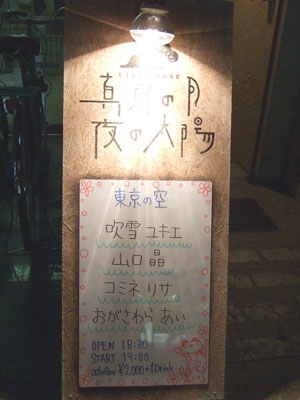 LIVE HOUSE
真昼の月
夜の太陽
東京の空
吹雪 ユキエ
山口 晶
コミネ リサ
おがさわら あい
OPEN 18:30
START 19:00
¥2,000+1Drink